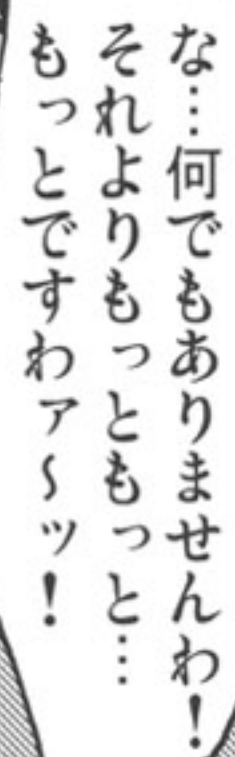 な…何でもありませんわ！
それよりもっともっと…
もっとですわァ〜ッ！